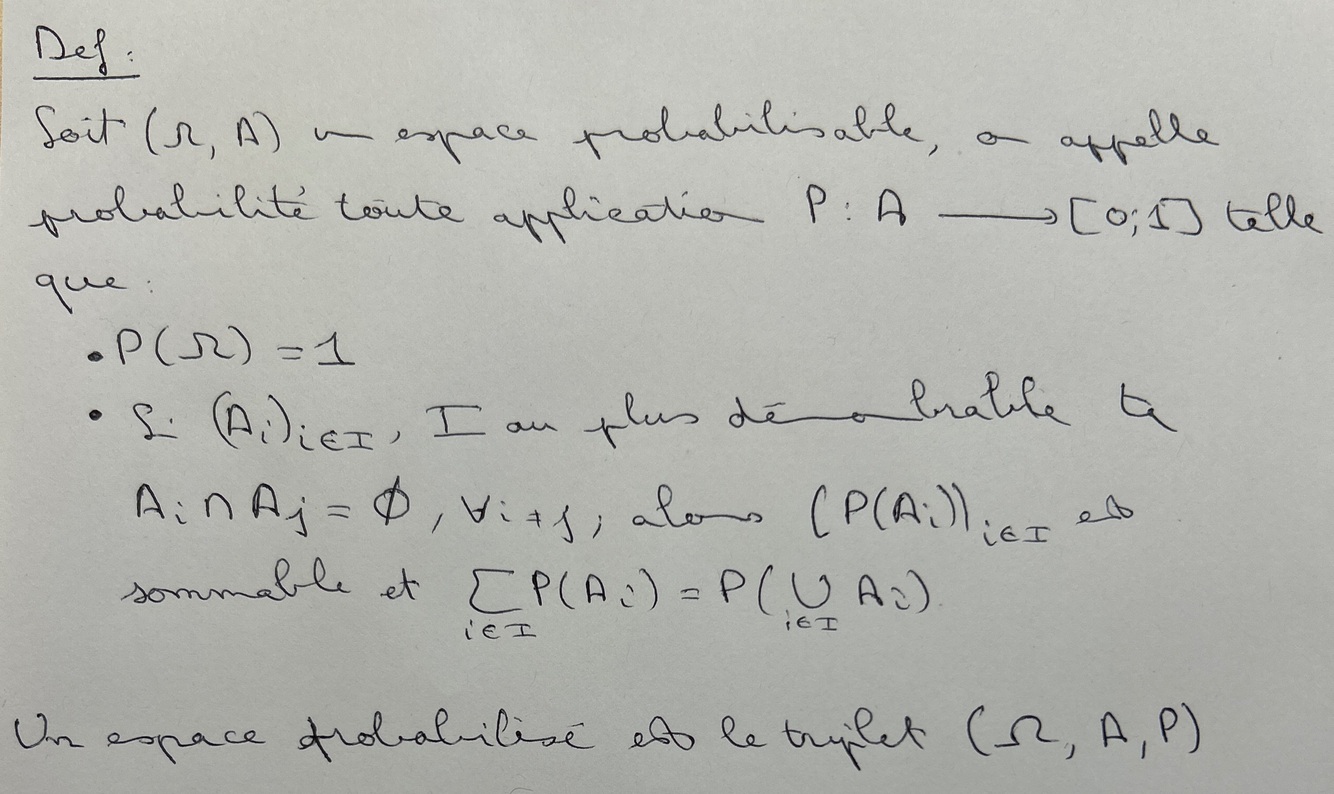 Def :
Soit (Ω, A) un espace probabilisable, on appelle
probabilité toute application P : A ⟶ [0;1] telle
que :
• P(Ω) = 1
• Si (Ai)i∈I, I au plus dénombrable tq
Ai ∩ Aj = ∅, ∀i≠j, alors (P(Ai))i∈I est
sommable et ∑i∈I P(Ai) = P(∪i∈I Ai).
Un espace probabilisé est le triplet (Ω, A, P)